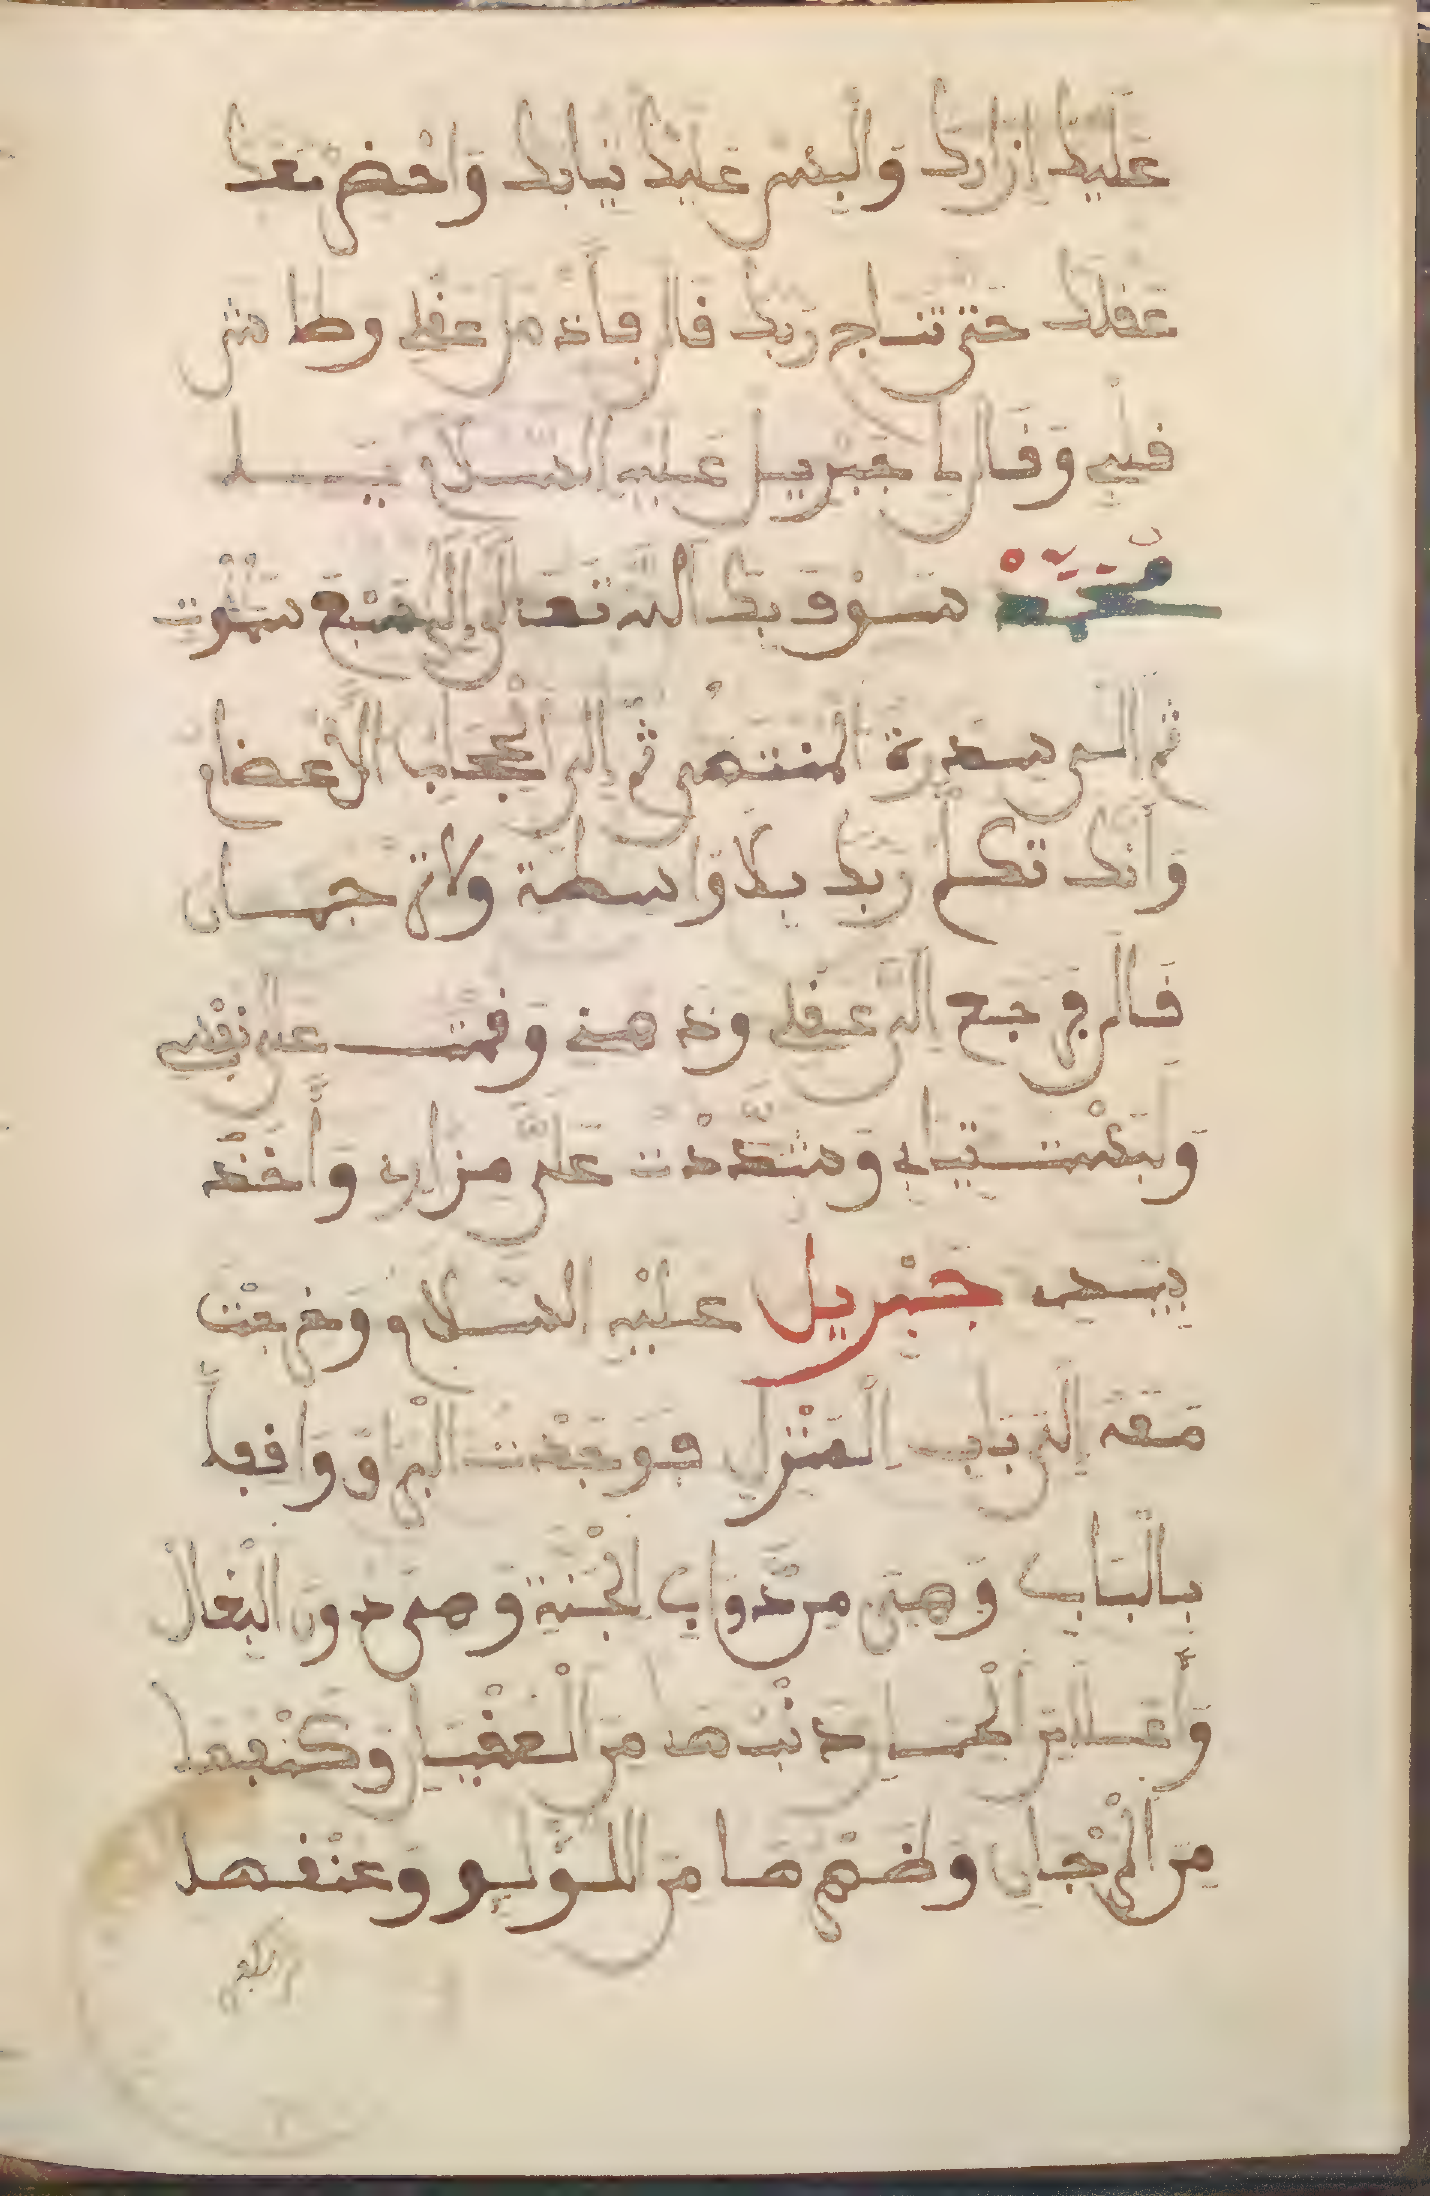 عَلَيْكَ إِزَارَكَ وَالْبَسْ عَلَيْكَ ثِيَابَكَ وَاحْضَرْ مَعَكَ
عَقْلَكَ حَتَّى تُنَاجِ رَبَّكَ قَالَ فَأَخَذَ مِنِّ عَقْلِ وَطَاشَ
قَلْبِي وَقَالَ لِي جَبْرِيلُ عَلَيْهِ السَّلَامُ يَا
مُحَمَّدْ سَوْفَ بِكَ اللهُ تَعَالَى إِلَى سَبْعَ سَمَوَاتِ
ثُمَّ إِلَى سِدْرَةِ الْمُنْتَهَى ثُمَّ إِلَى الْحِجَابِ الْأَعْضَامِ
وَأَنَّكَ تُكَلِّمُ رَبَّكَ بِلَا وَاسِطَةٍ وَلَا تَرْجُمَانِ
قَالَ فَرَجَعَ إِلَيَّ عَقْلِي وَذِهْنِي وَقُمْتُ عَلَى نَفْسِي
وَلَبَسْتُ ثِيَابِي وَشَدَّدْتُ عَلَيَّ مِزَارِي وَأَخَذَ
بِيَدِي جَبْرِيلُ عَلَيْهِ السَّلَامُ وَخَرَجْتُ
مَعَهُ إِلَى بَابِ الْمَنْزِلِ فَوَجَدْتُ الْبُرَاقَ وَاقِفاً
بِالْبَابِ وَهِيَ مِنْ دَوَابِّ الْجَنَّةِ وَهِيَ دُونَ الْبِغَالْ
وَأَعْلَا مِنَ الْحِمَارِ ذَنْبُهَا مِنَ الْعَقْيَانِ وَكَنْفُهَا
مِنَ الْمَرْجَانِ وَظَهْرُهَا مِنَ اللُّؤْلُؤِ وَعُنْقُهَا